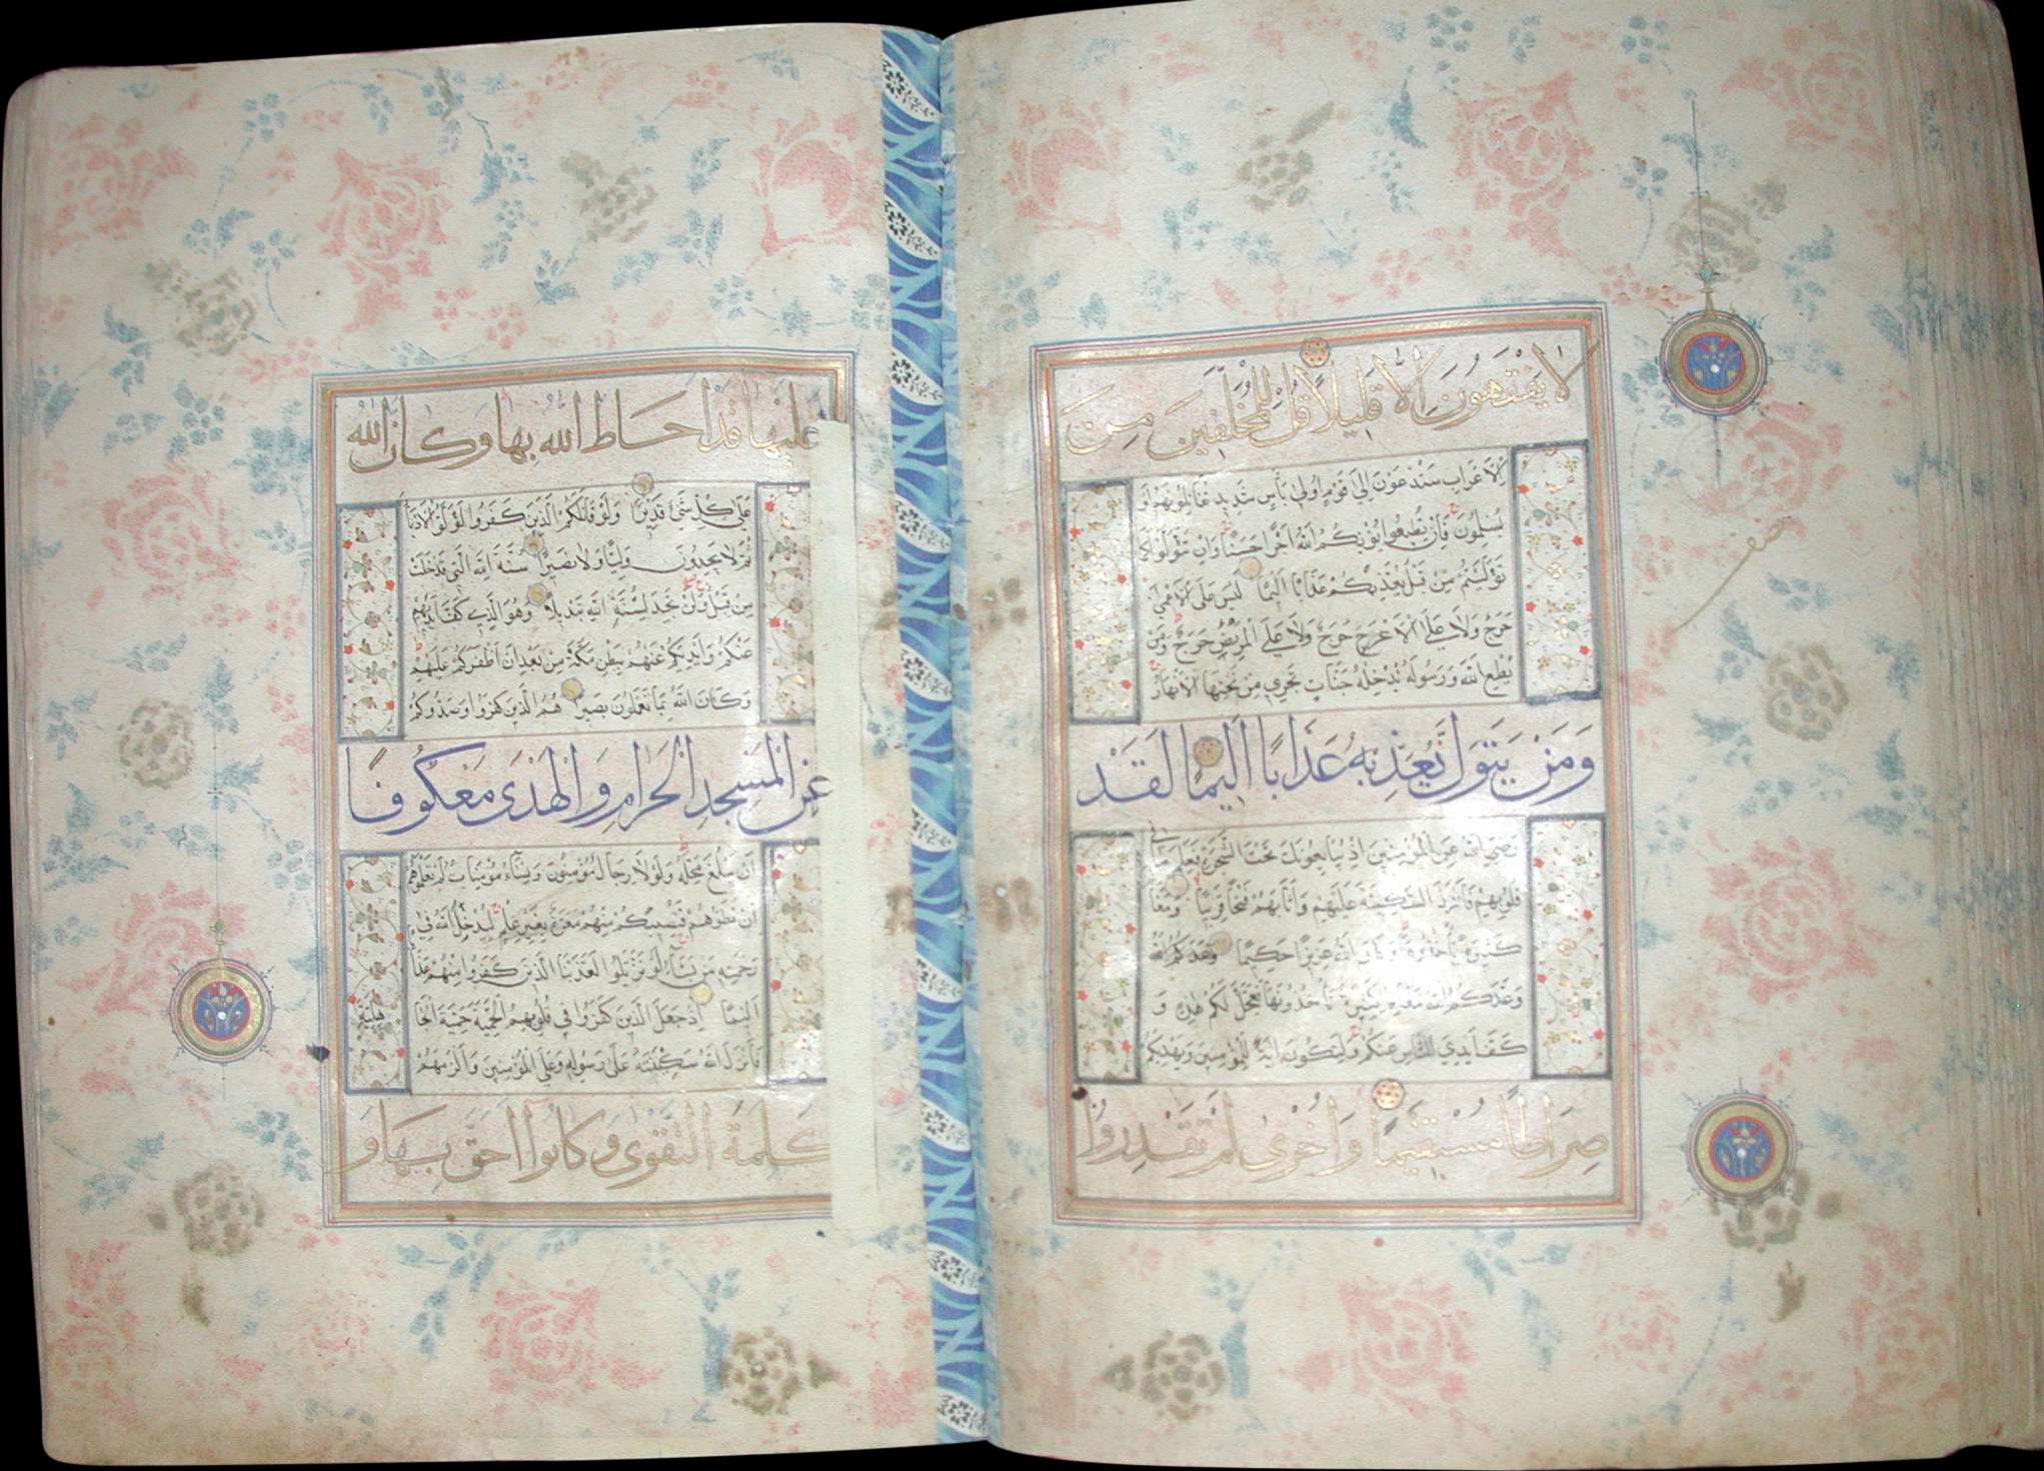 لا يَفْقَهُونَ اِلَّا قَلِيلاً قُلْ لِلْمُخَلَّفِينَ مِنَ
الْاَعْرَابِ سَتُدْعَوْنَ اِلَىٰ قَوْمٍ اُولِى بَأْسٍ شَدِيدٍ تُقَاتِلُونَهُمْ اَوْ
يُسْلِمُونَ فَاِنْ تُطِيعُوا يُؤْتِكُمُ اللهُ اَجْرًا حَسَنًا وَاِنْ تَتَوَلَّوْا كَمَا
تَوَلَّيْتُمْ مِنْ قَبْلُ يُعَذِّبْكُمْ عَذَابًا اَلِيمًا لَيْسَ عَلَى الْاَعْمَىٰ
حَرَجٌ وَلَا عَلَى الْاَعْرَجِ حَرَجٌ وَلَا عَلَى الْمَرِيضِ حَرَجٌ وَمَنْ
يُطِعِ اللهَ وَرَسُولَهُ يُدْخِلْهُ جَنَّاتٍ تَجْرِى مِنْ تَحْتِهَا الْاَنْهَارُ
وَمَنْ يَتَوَلَّ يُعَذِّبْهُ عَذَابًا اَلِيمًا لَقَدْ
رَضِىَ اللهُ عَنِ الْمُؤْمِنِينَ اِذْ يُبَايِعُونَكَ تَحْتَ الشَّجَرَةِ فَعَلِمَ مَا فِى
قُلُوبِهِمْ فَاَنْزَلَ السَّكِينَةَ عَلَيْهِمْ وَاَثَابَهُمْ فَتْحًا قَرِيبًا وَمَغَا
كَثِيرَةً يَأْخُذُونَهَا وَكَانَ اللهُ عَزِيزًا حَكِيمًا وَعَدَكُمُ اللهُ
وَعَدَكُمُ اللهُ مَغَانِمَ كَثِيرَةً تَأْخُذُونَهَا فَعَجَّلَ لَكُمْ هٰذِهِ وَ
كَفَّ اَيْدِىَ النَّاسِ عَنْكُمْ وَلِتَكُونَ اٰيَةً لِلْمُؤْمِنِينَ وَيَهْدِيَكُمْ
صِرَاطًا مُسْتَقِيمًا وَاُخْرَىٰ لَمْ تَقْدِرُوا
عَلَيْهَا قَدْ اَحَاطَ اللهُ بِهَا وَكَانَ اللهُ
عَلَىٰ كُلِّ شَىْءٍ قَدِيرًا وَلَوْ قَاتَلَكُمُ الَّذِينَ كَفَرُوا لَوَلَّوُا الْاَدْبَا
ثُمَّ لَا يَجِدُونَ وَلِيًّا وَلَا نَصِيرًا سُنَّةَ اللهِ الَّتِى قَدْ خَلَتْ
مِنْ قَبْلُ وَلَنْ تَجِدَ لِسُنَّةِ اللهِ تَبْدِيلًا وَهُوَ الَّذِى كَفَّ اَيْدِيَهُمْ
عَنْكُمْ وَاَيْدِيَكُمْ عَنْهُمْ بِبَطْنِ مَكَّةَ مِنْ بَعْدِ اَنْ اَظْفَرَكُمْ عَلَيْهِمْ
وَكَانَ اللهُ بِمَا تَعْمَلُونَ بَصِيرًا هُمُ الَّذِينَ كَفَرُوا وَصَدُّوكُمْ
عَنِ الْمَسْجِدِ الْحَرَامِ وَالْهَدْىَ مَعْكُوفًا
اَنْ يَبْلُغَ مَحِلَّهُ وَلَوْلَا رِجَالٌ مُؤْمِنُونَ وَنِسَاءٌ مُؤْمِنَاتٌ لَمْ تَعْلَمُوهُمْ
اَنْ تَطَؤُهُمْ فَتُصِيبَكُمْ مِنْهُمْ مَعَرَّةٌ بِغَيْرِ عِلْمٍ لِيُدْخِلَ اللهُ فِى
رَحْمَتِهِ مَنْ يَشَاءُ لَوْ تَزَيَّلُوا لَعَذَّبْنَا الَّذِينَ كَفَرُوا مِنْهُمْ عَذَابًا
اَلِيمًا اِذْ جَعَلَ الَّذِينَ كَفَرُوا فِى قُلُوبِهِمُ الْحَمِيَّةَ حَمِيَّةَ الْجَا
هِلِيَّةِ
فَاَنْزَلَ اللهُ سَكِينَتَهُ عَلَىٰ رَسُولِهِ وَعَلَى الْمُؤْمِنِينَ وَاَلْزَمَهُمْ
كَلِمَةَ التَّقْوَىٰ وَكَانُوا اَحَقَّ بِهَا وَ